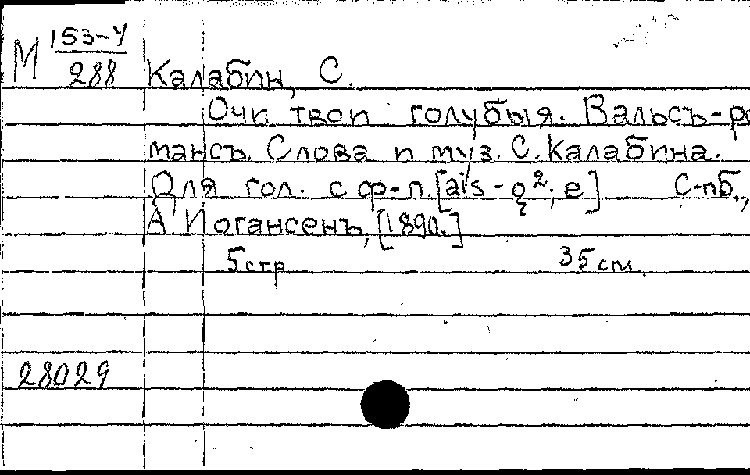 М 153-У
288
Калабин, С.
Очи твои голубыя. Вальсъ-ро
мансъ. Слова и муз. С. Калабина.
Для гол. с ф-п. [ais-g²; e] С-пБ.,
А. Иогансенъ, [1890.]
5 стр 35 см.
28029